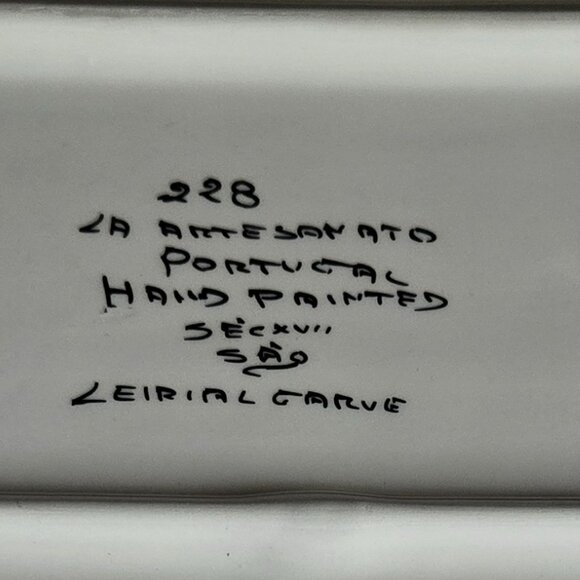 228
LA ARTESANATO
PORTUGAL
HAND PAINTED
SÉCXVII
SÃO
LEIRIALGARVE